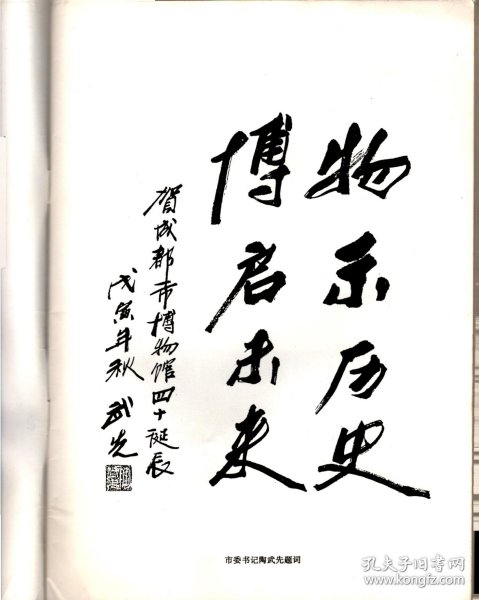 物示历史
博启未来
贺成都市博物馆四十诞辰
戊寅年秋 武先
市委书记陶武先题词
孔夫子旧书网
www.kongfz.com